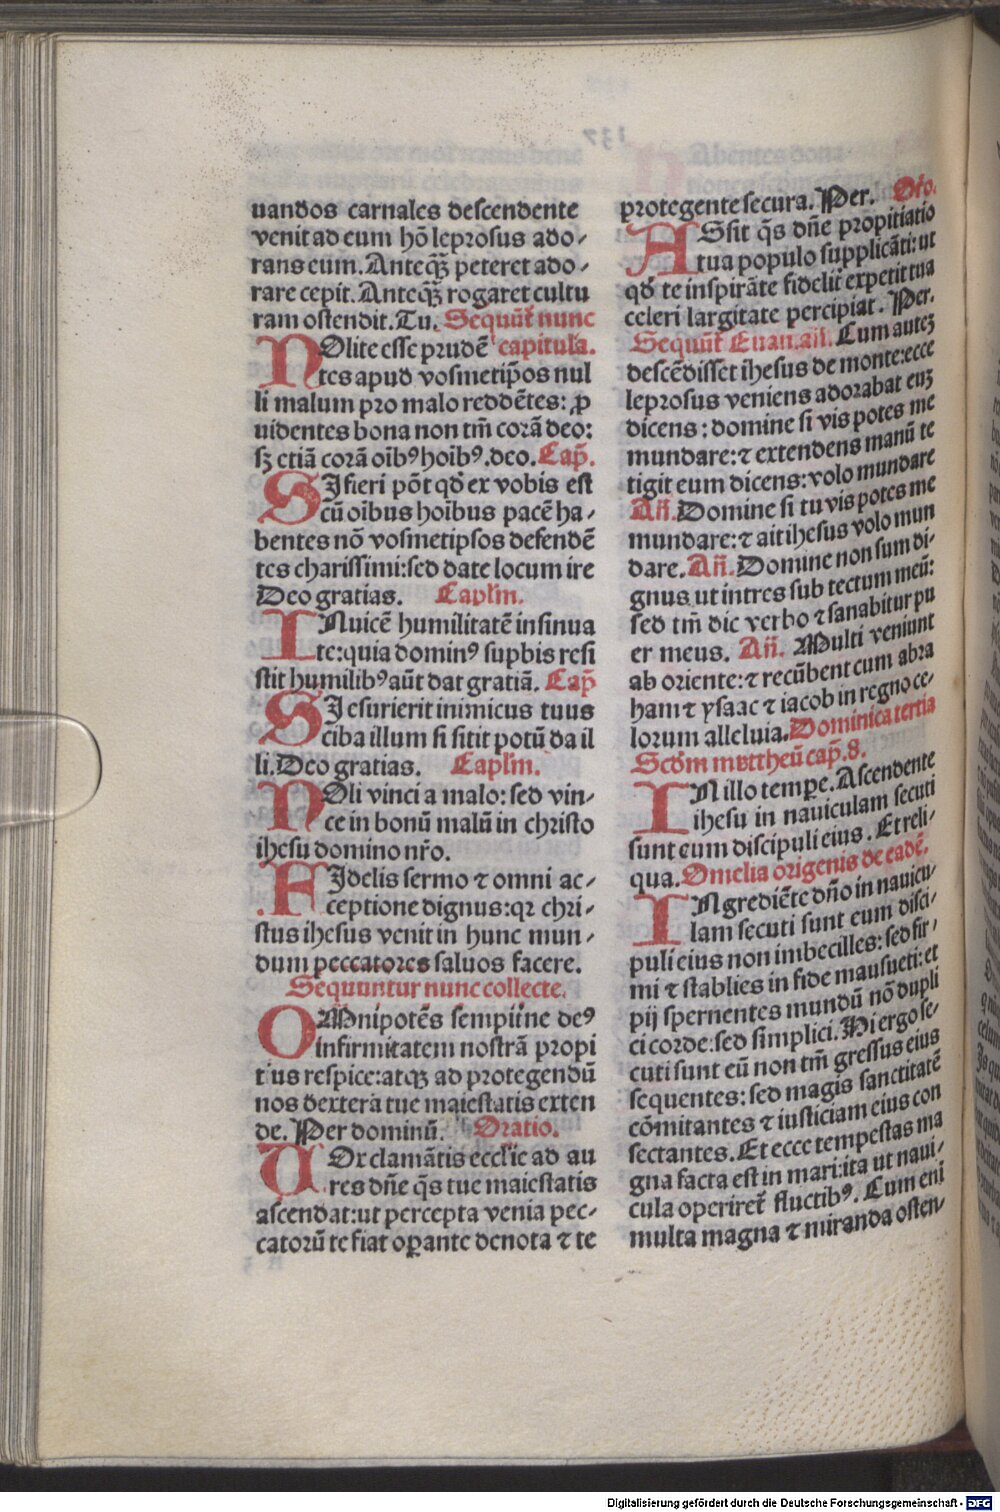 uandos carnales descendente
venit ad eum hō leprosus ado-
rans eum. Anteqꝫ peteret ado-
rare cepit. Anteqꝫ rogaret cultu
ram ostendit. Tu. Sequūt̄ nunc
NOlite esse prudē capitula.
tes apud vosmetip̄os nul
li malum pro malo reddētes: ꝓ
uidentes bona non tm̄ corā deo:
sꝫ etiā corā oībꝰ hoībꝰ. deo. Cap̄.
SI fieri pōt qđ ex vobis est
cū oībus hoībus pacē ha-
bentes nō vosmetipsos defendē
tes charissimi: sed date locum ire
Deo gratias. Capl̄m.
INuicē humilitatē insinua
te: quia dominꝰ supbis resi
stit humilibꝰ aūt dat gratiā. Cap̄
SI esurierit inimicus tuus
ciba illum si sitit potū da il
li. Deo gratias. Capl̄m.
NOli vinci a malo: sed vin-
ce in bonū malū in christo
ihesu domino nr̄o.
FIdelis sermo ⁊ omni ac-
ceptione dignus: qꝛ chri-
stus ihesus venit in hunc mun-
dum peccatores saluos facere.
Sequuntur nunc collecte.
OMnipotēs sempit̄ne deꝰ
infirmitatem nostrā propi
tius respice: atqꝫ ad protegendū
nos dextera tue maiestatis exten
de. Per dominū. Oratio.
VOx clamātis eccl̄ie ad au
res dn̄e q̄s tue maiestatis
ascendat: ut percepta venia pec-
catorū te fiat oꝑante deuota ⁊ te
protegente secura. Per. Or̄o.
ASsit q̄s dn̄e propitiatio
tua populo supplicāti: ut
qđ te inspirāte fidelit̄ expetit tua
celeri largitate percipiat. Per.
Sequūt̄ Euan. an̄. Cum auteꝫ
descēdisset ihesus de monte: ecce
leprosus veniens adorabat euꝫ
dicens: domine si vis potes me
mundare: ⁊ extendens manū te
tigit eum dicens: volo mundare
An̄. Domine si tu vis potes me
mundare: ⁊ ait ihesus volo mun
dare. An̄. Domine non sum di-
gnus ut intres sub tectum meū:
sed tm̄ dic verbo ⁊ sanabitur pu
er meus. An̄. Multi veniunt
ab oriente: ⁊ recūbent cum abra
ham ⁊ ysaac ⁊ iacob in regno ce-
lorum alleluia. Dominica tertia
Scđm mattheū cap̄. 8.
IN illo tempe. Ascendente
ihesu in nauiculam secuti
sunt eum discipuli eius. Et reli-
qua. Omelia origenis de eadē.
INgrediēte dn̄o in nauicu-
lam secuti sunt eum disci-
puli eius non imbecilles: sed fir-
mi ⁊ stablies in fide mansueti: et
pij spernentes mundū nō dupli
ci corde: sed simplici. Hi ergo se-
cuti sunt eū non tm̄ gressus eius
sequentes: sed magis sanctitatē
cōmitantes ⁊ iusticiam eius con
sectantes. Et ecce tempestas ma
gna facta est in mari: ita ut naui-
cula operiret̄ fluctibꝰ. Cum enī
multa magna ⁊ miranda osten-
Digitalisierung gefördert durch die Deutsche Forschungsgemeinschaft - DFG